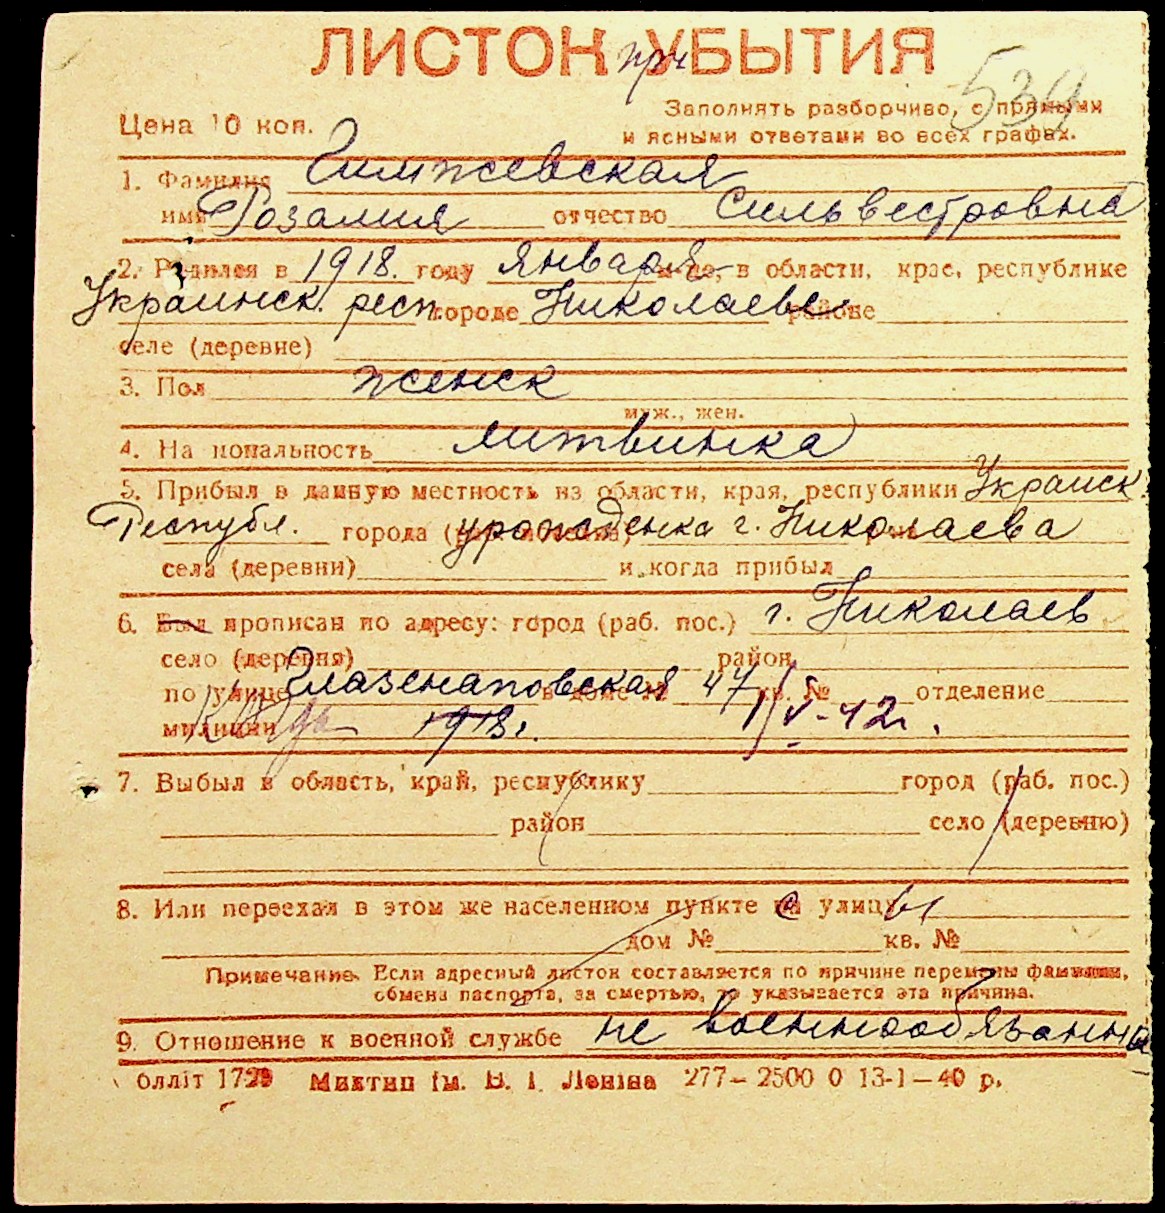 ЛИСТОК при УБЫТИЯ
539
Цена 10 коп.
Заполнять разборчиво, с прямыми
и ясными ответами во всех графах.
1. Фамилия Гимжевская
имя Розалия отчество Сильвестровна
2. Родился в 1918. году января м-це, в области, крае, республике
Украинск. респ. городе Николаеве районе
селе (деревне)
3. Пол женск
муж., жен.
4. На иональность литвинка
5. Прибыл в данную местность из области, края, республики Украинск
Республ. города уроженка г. Николаева
села (деревни) и когда прибыл
6. Был прописан по адресу: город (раб. пос.) г. Николаев
село (деревня) район
по улице Глазенаповская в доме № 47 кв. № отделение
милиции 1918г. 1/V-42г.
7. Выбыл в область, край, республику город (раб. пос.)
район село (деревню)
8. Или переехал в этом же населенном пункте на улицу
дом № кв. №
Примечание. Если адресный листок составляется по причине перемены фамилии,
обмена паспорта, за смертью, то указывается эта причина.
9. Отношение к военной службе не военнообязанна
блліт 1729 Миктип ім. В. І. Леніна 277–2500 0 13-1–40 р.